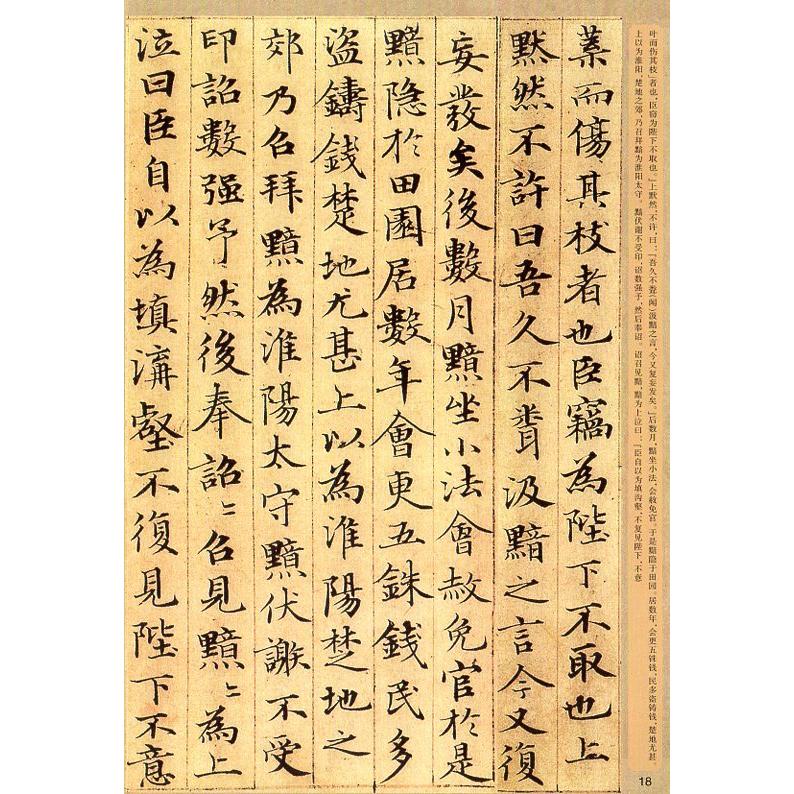 叶而伤其枝』者也,臣窃为陛下不取也。』上默然,不许,曰:『吾久不䎽(闻)汲黯之言,今又复妄发矣。』后数月,黯坐小法,会赦免官。于是黯隐于田园。居数年,会更五铢钱,民多盗铸钱,楚地尤甚。
上以为淮阳,楚地之郊,乃召拜黯为淮阳太守。黯伏谢不受印,诏数强予,然后奉诏。诏召见黯,黯为上泣曰:『臣自以为填沟壑,不复见陛下,不意
葉而傷其枝者也臣竊為陛下不取也上
默然不許曰吾久不䎽汲黯之言今又復
妄發矣後數月黯坐小法會赦免官於是
黯隐於田園居數年會更五銖錢民多
盜鑄錢楚地尤甚上以為淮陽楚地之
郊乃召拜黯為淮陽太守黯伏謝不受
印詔數强予然後奉詔〻召見黯〻為上
泣曰臣自以為填溝壑不復見陛下不意
18